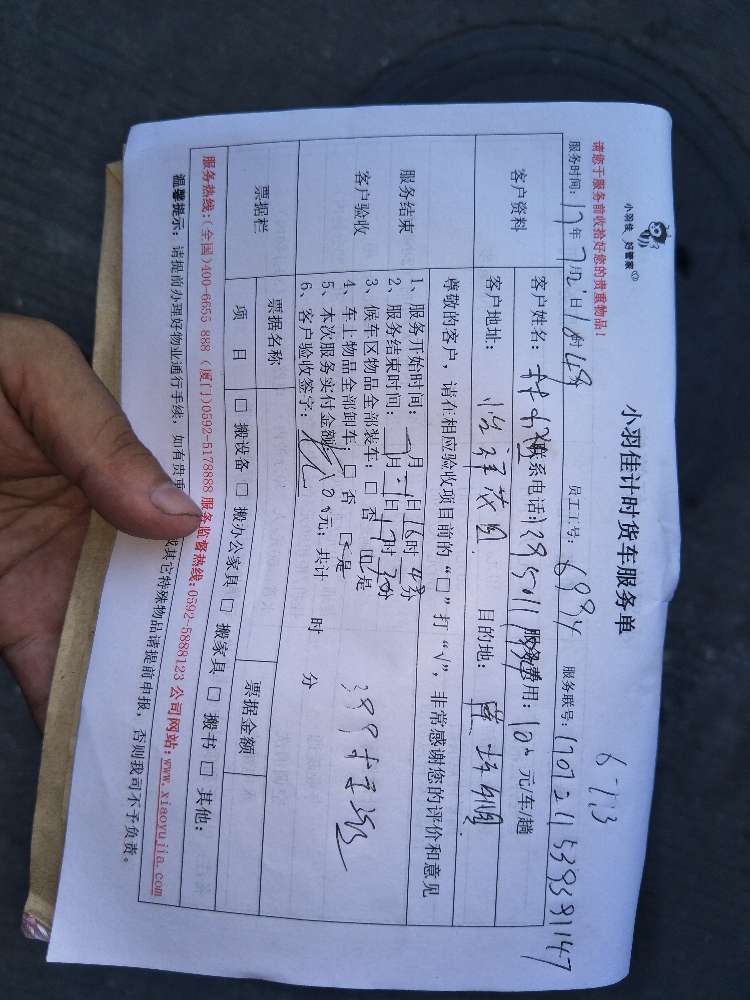 小羽佳 好管家
小羽佳计时货车服务单
6-113
请您于服务前收拾好您的贵重物品！
服务时间：17年7月21日16时48分 员工工号：6994 服务联号：170721153938147
客户资料
客户姓名： 联系电话： 服务费用：100元/车/趟
客户地址： 目的地：
尊敬的客户，请在相应验收项目前的“□”打“√”，非常感谢您的评价和意见
服务结束
客户验收
1、服务开始时间：7月21日16时48分
2、服务结束时间：7月21日17时30分
3、候车区物品全部装车：□ 否 □是
4、车上物品全部卸车：□ 否 □是
5、本次服务实付金额：100元；共计 时 分
6、客户验收签字：
票据栏
票据名称 票据金额
项 目 □ 搬设备 □ 搬办公家具 □ 搬家具 □ 搬书 □ 其他：
服务热线：(全国)400-6655 888 (厦门)0592-5178888 服务监督热线：0592-5888123 公司网站：www.xiaoyujia.com
温馨提示：请提前办理好物业通行手续，如有贵重 或其它特殊物品请提前申报，否则我司不予负责。